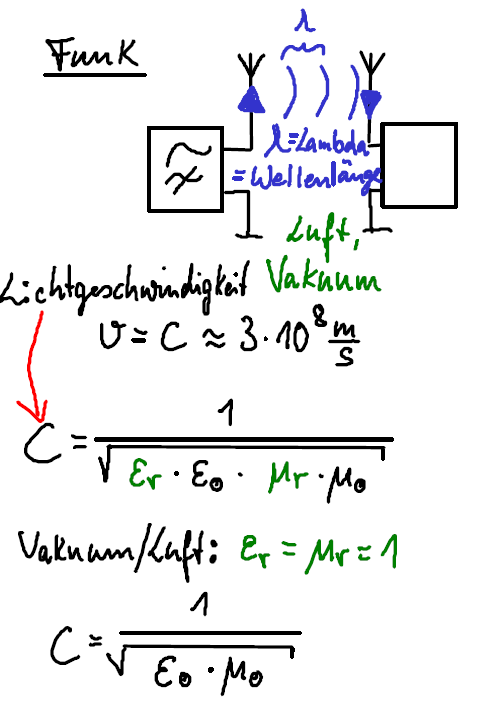 Funk
λ
λ=Lambda
=Wellenlänge
Luft,
Vakuum
Lichtgeschwindigkeit
v = c ≈ 3·10⁸ m/s
c = 1/√(εr · ε0 · μr · μ0)
Vakuum/Luft: εr = μr = 1
c = 1/√(ε0 · μ0)